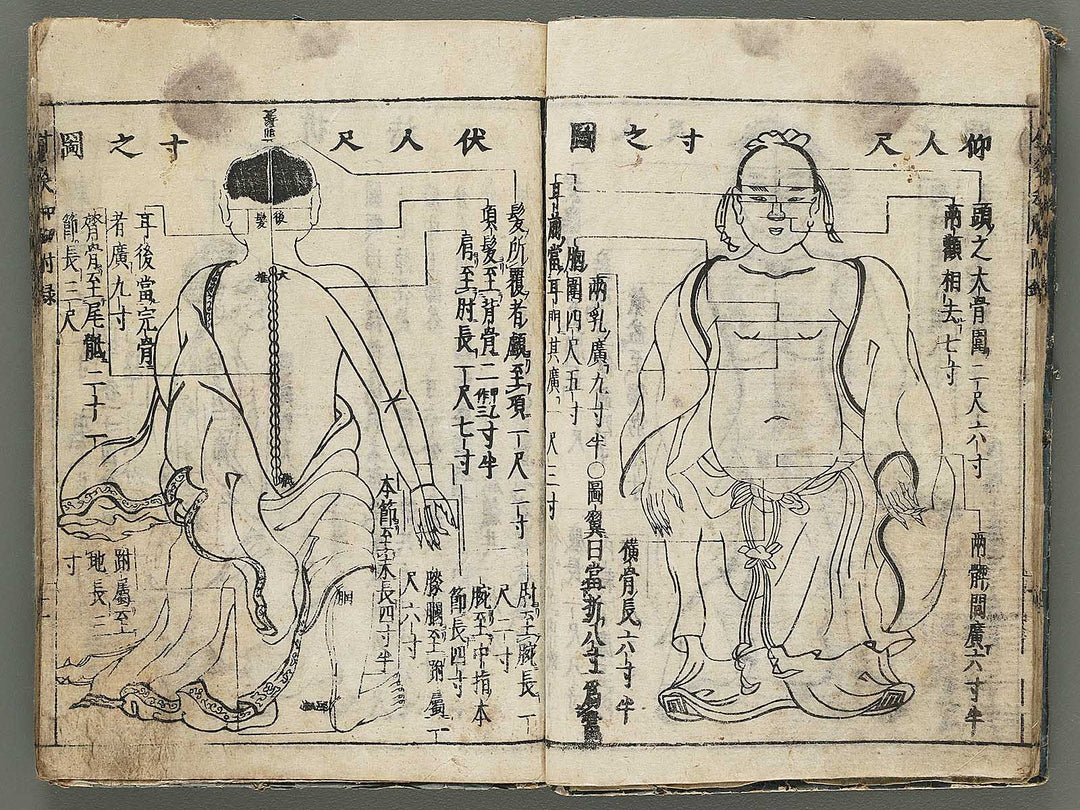 仰人尺寸之圖
頭之大骨圍二尺六寸
兩顴相去七寸
兩髀間廣六寸半
兩乳廣九寸半○圖翼曰當折八寸爲
胸圍四尺五寸
橫骨長六寸半
耳前當耳門其廣一尺三寸
伏人尺寸之圖
後髮
大椎
膕
髮所覆者顱至項一尺二寸
項髮至背骨二寸半
肩至肘長一尺七寸
肘至腕長一尺二寸
腕至中指本節長四寸
本節至末長四寸半
膝膕至跗屬一尺六寸
耳後當完骨者廣九寸
膂骨至尾骶二十一節長三尺
跗屬至地長三寸